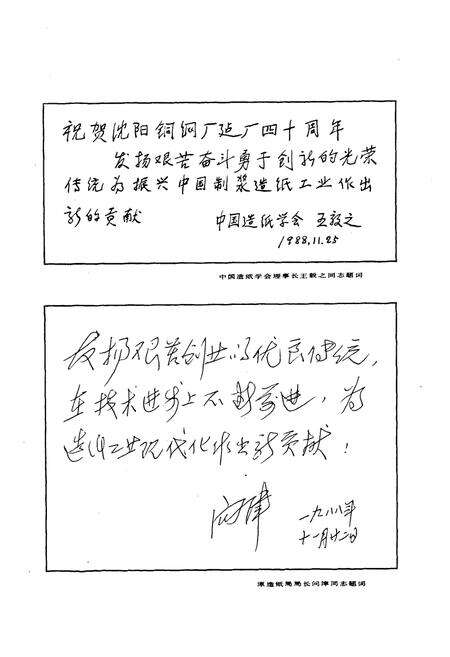 祝贺沈阳铜网厂建厂四十周年
发扬艰苦奋斗勇于创新的光荣
传统为振兴中国制浆造纸工业作出
新的贡献
中国造纸学会 王毅之
1988.11.25
中国造纸学会理事长王毅之同志题词
发扬艰苦创业的优良传统，
在技术进步上不断前进，为
造纸工业现代化作出新贡献！
一九八八年
十一月廿二日
原造纸局局长 同志题词